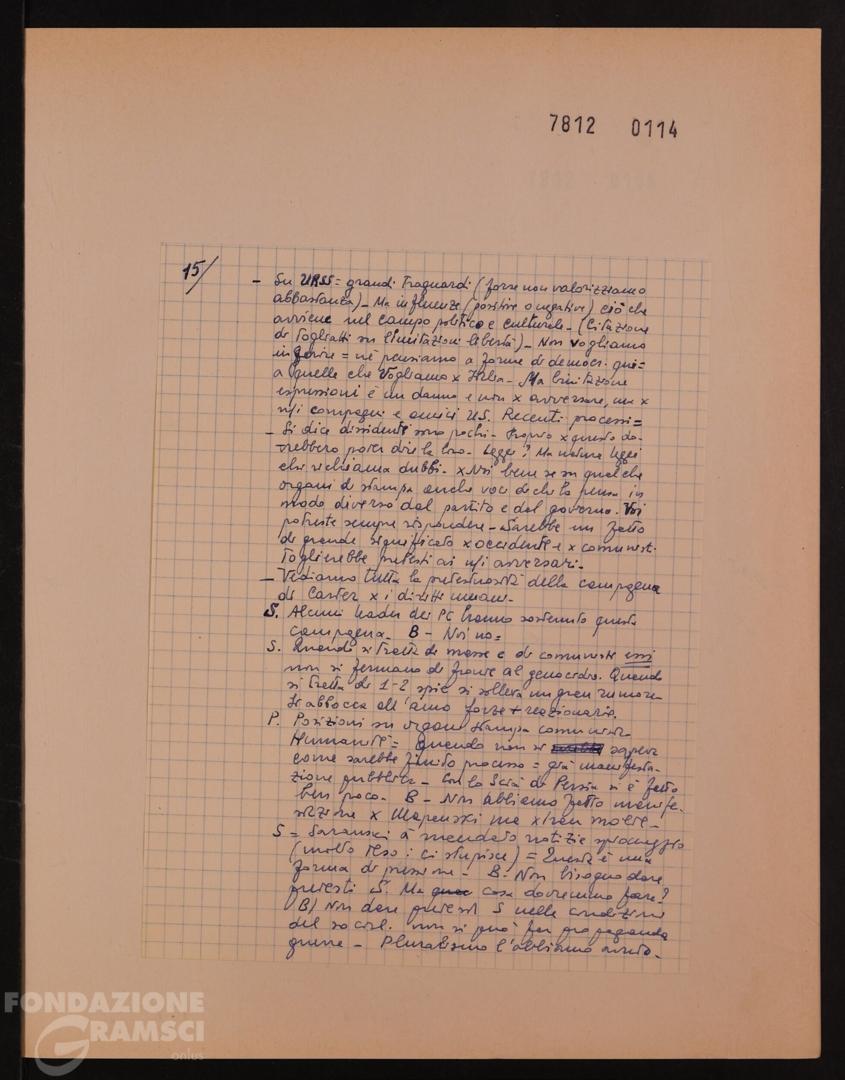 7812 0114
15/
- Su URSS = grandi traguardi (forse non valorizziamo
abbastanza) - Ma influenze (positive o negative) ciò che
avviene nel campo politico e culturale - (Citazione
di Togliatti su limitazioni libertà) - Non vogliamo
= nè pensiamo a forme di democr.
a quelle che vogliamo x Italia - Ma limitazione
espressioni è un danno e non x avversari, ma x
n/i compagni e amici US. Recenti processi =
- Si dice dissidenti sono pochi - Proprio x questo do-
vrebbero poter dire la loro - Leggi? Ma
che richiama dubbi - x Noi bene se su qualche
organi di stampa anche voci di chi la pensa in
modo diverso dal partito e dal governo. Voi
potreste sempre rispondere - Sarebbe un fatto
di grande significato x occidente e x comunisti
Toglierebbe pretesti ai n/i avversari -
- Vediamo tutta la pretestuosità della campagna
di Carter x i diritti umani -
S. Alcuni leader dei PC hanno sostenuto questa
campagna - B - Noi no =
S. Quando si tratta di masse e di comunisti essi
non si fermano di fronte al genocidio. Quando
si tratta di 1-2 spie si solleva un gran rumore
Si abbocca all'amo forze + reazionarie.
P. Posizioni su organi stampa comunisti
Humanité = Quando non si sapeva
come sarebbe finito processo = già manifesta-
zione pubblica - Con lo Scià di Persia si è fatto
ben poco - B - Noi abbiamo fatto manife-
stazione x ma x Iran molte -
S = à mandato notizie spionaggio
(molto teso: ci stupisce) = Questa è una
forma di pressione - B. Non bisogna dare
pretesti S. Ma cosa dovremmo fare?
B) Non dare pretesti S nelle condizioni
del social. non si può far propaganda
guerra - Pluralismo l'abbiamo avuto -
FONDAZIONE
GRAMSCI
onlus